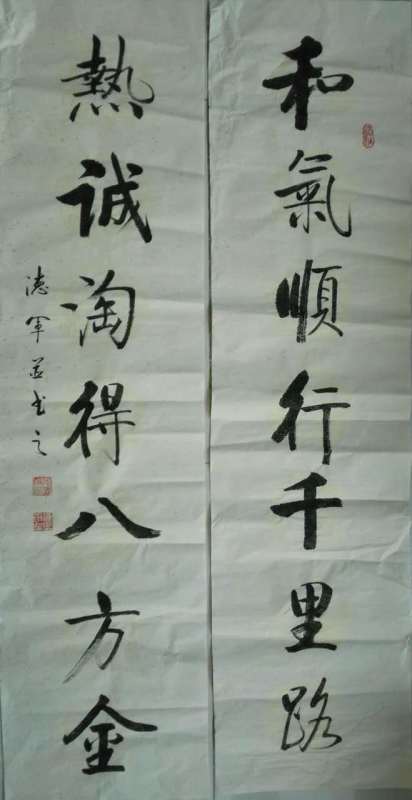 和氣順行千里路
熱誠淘得八方金
德軍並書之